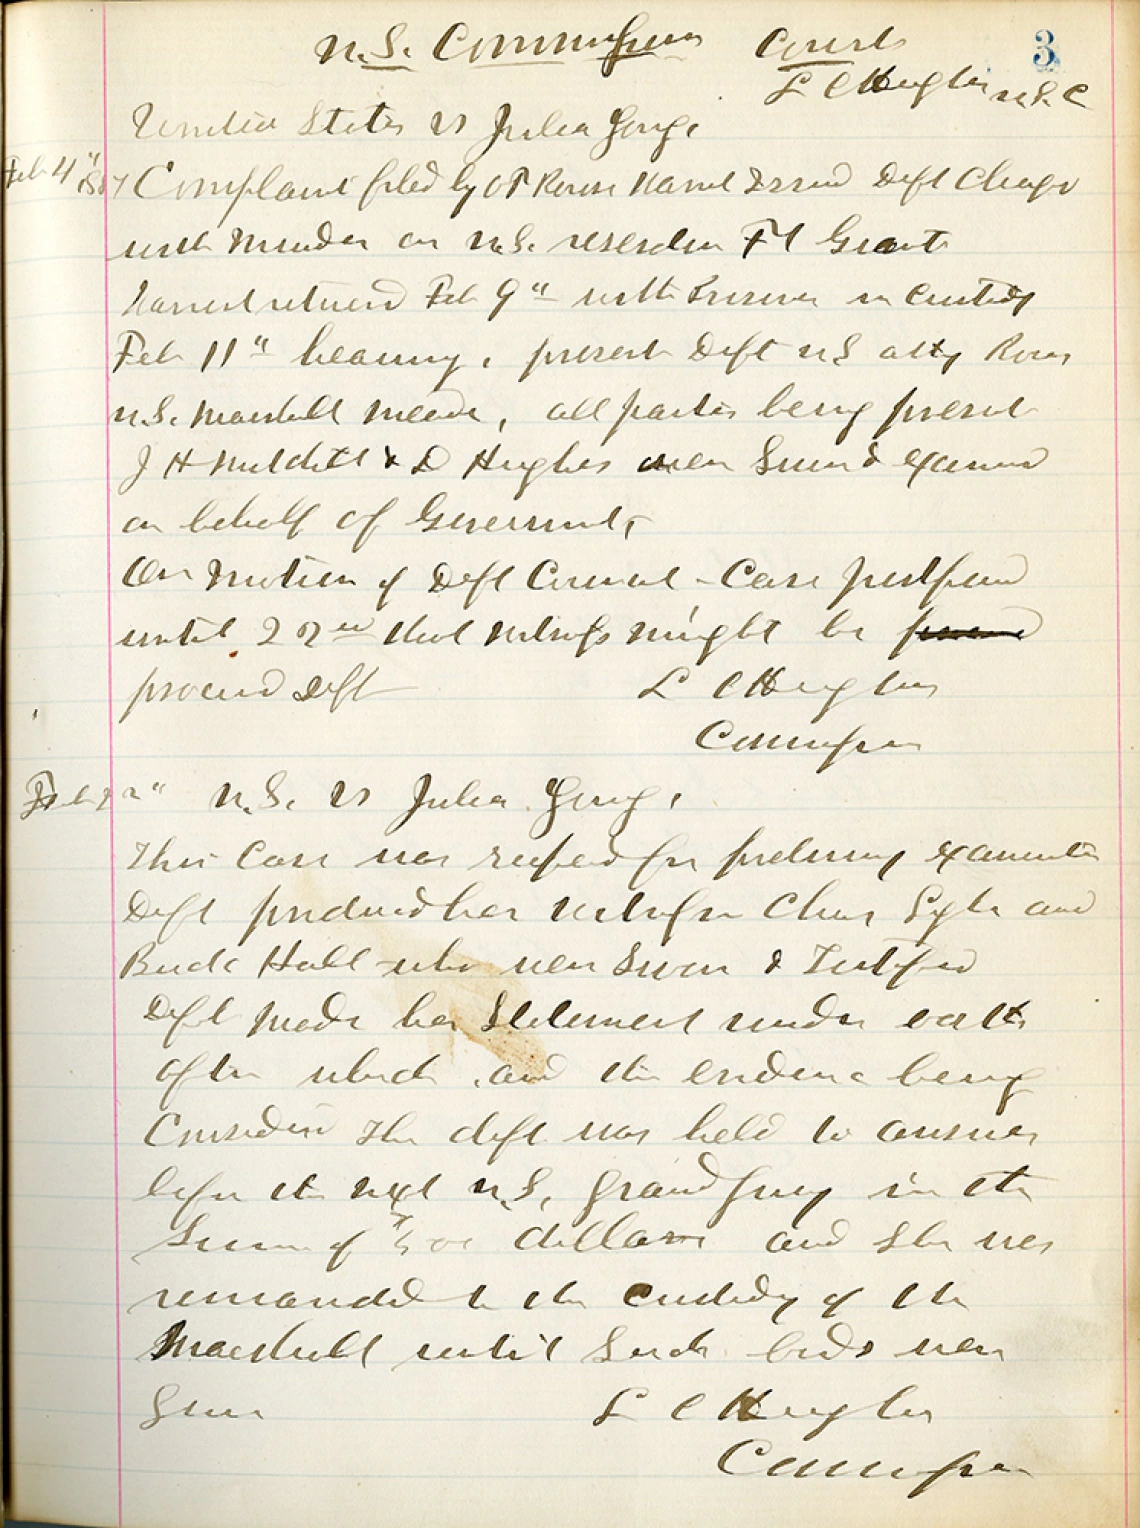 U.S. Commissioner Court 3
L C Hughes U.S.C
United States vs Julia Gong.
Feb 4" 1887 Complaint filed by O T Rouse Warnt Issued Deft Charge
with Murder on U.S. reservation Ft Grant
Warrnt returned Feb 9" with Prisoner in Custody
Feb 11" hearing, present Deft U S atty Rouse
U.S. Marshall Meade, all parties being present
J H Mitchell & D Hughes were Sworn & Examined
on behalf of Government,
On Motion of Deft Counsel - Case postponed
until 22nd that witness might be
procured Deft L C Hughes
Commissioner
Feb 22" U.S. vs Julia Gong.
This Case was reopened for preliminary examination
Deft produced her witnesses Chas and
Buck Hall who were Sworn & Testified
Deft Made her Statement under oath
after which and the evidence being
Considered The deft was held to answer
before the next U.S. Grand Jury in the
Sum of 500 dollars and She was
remanded to the Custody of the
Marshall until Such bonds were
Given L C Hughes
Commissioner